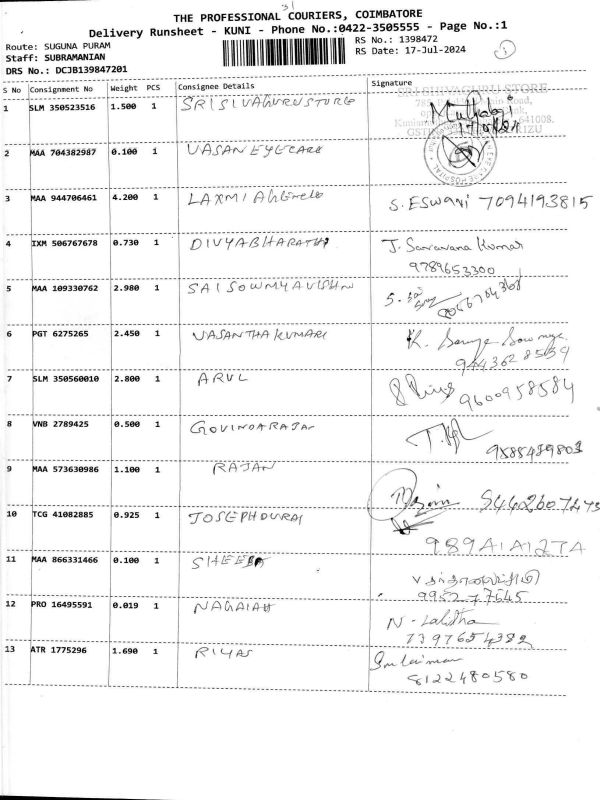 THE PROFESSIONAL COURIERS, COIMBATORE
Delivery Runsheet - KUNI - Phone No.:0422-3505555 - Page No.:1
Route: SUGUNA PURAM
RS No.: 1398472
Staff: SUBRAMANIAN
RS Date: 17-Jul-2024
DRS No.: DCJB139847201
S No Consignment No Weight PCS Consignee Details Signature
1 SLM 350523516 1.500 1 SRI SIVAGURUSTORE
2 MAA 704382987 0.100 1 VASAN EYECARE
3 MAA 944706461 4.200 1 LAXMI S. ESWARI 7094193815
4 IXM 506767678 0.730 1 DIVYABHARATHI J. Saravana Kumar
9789653300
5 MAA 109330762 2.980 1 SAISOWMYAVISHN
6 PGT 6275265 2.450 1 VASANTHAKUMARI
9443628559
7 SLM 350560010 2.800 1 ARUL 9600958584
8 VNB 2789425 0.500 1 GOVINDARAJAN
9 MAA 573630986 1.100 1 RAJAN
10 TCG 41082885 0.925 1 JOSEPHDURAI
11 MAA 866331466 0.100 1 SHEEBA
9952777645
12 PRO 16495591 0.019 1 NAGAIAH N - Lalitha
7397654382
13 ATR 1775296 1.690 1 RIYAS Sulaiman
8122480580